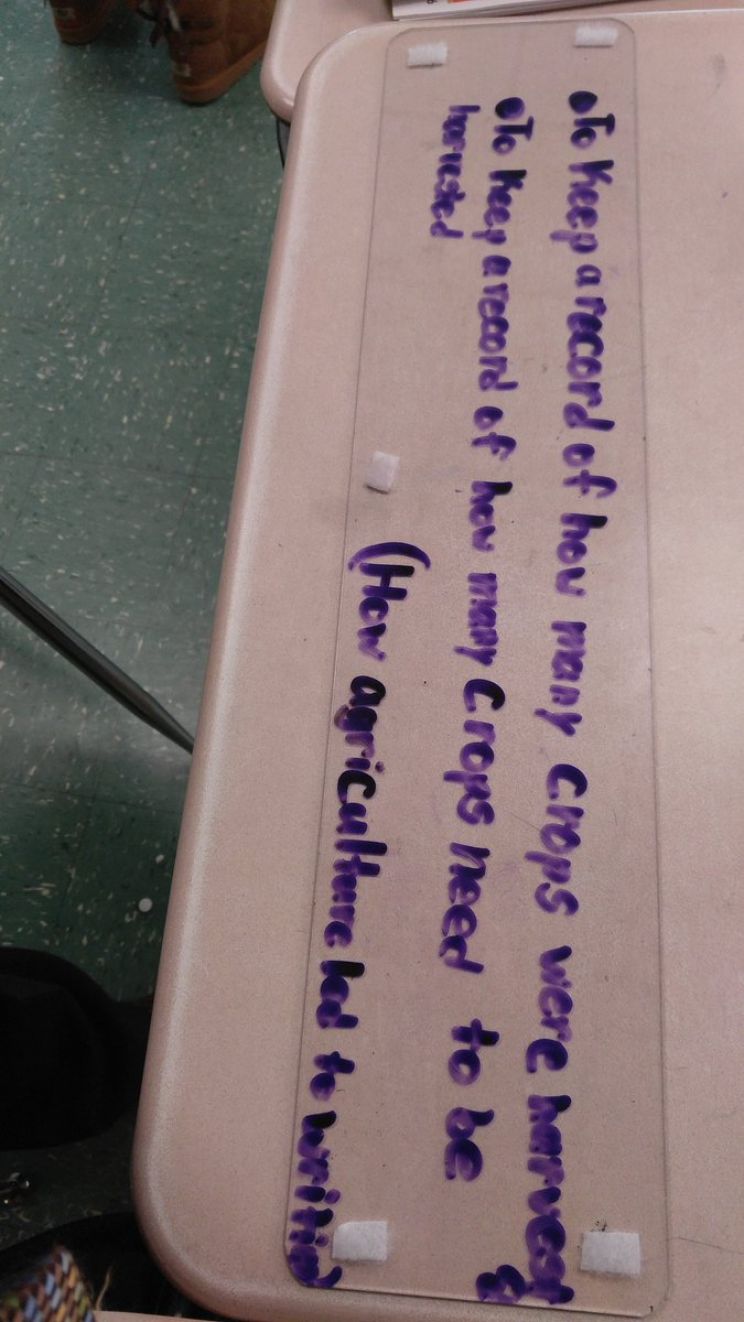 •To Keep a record of how many Crops were harvest
&
•To Keep a record of how many Crops need to be
harvested
(How agriculture led to writing)